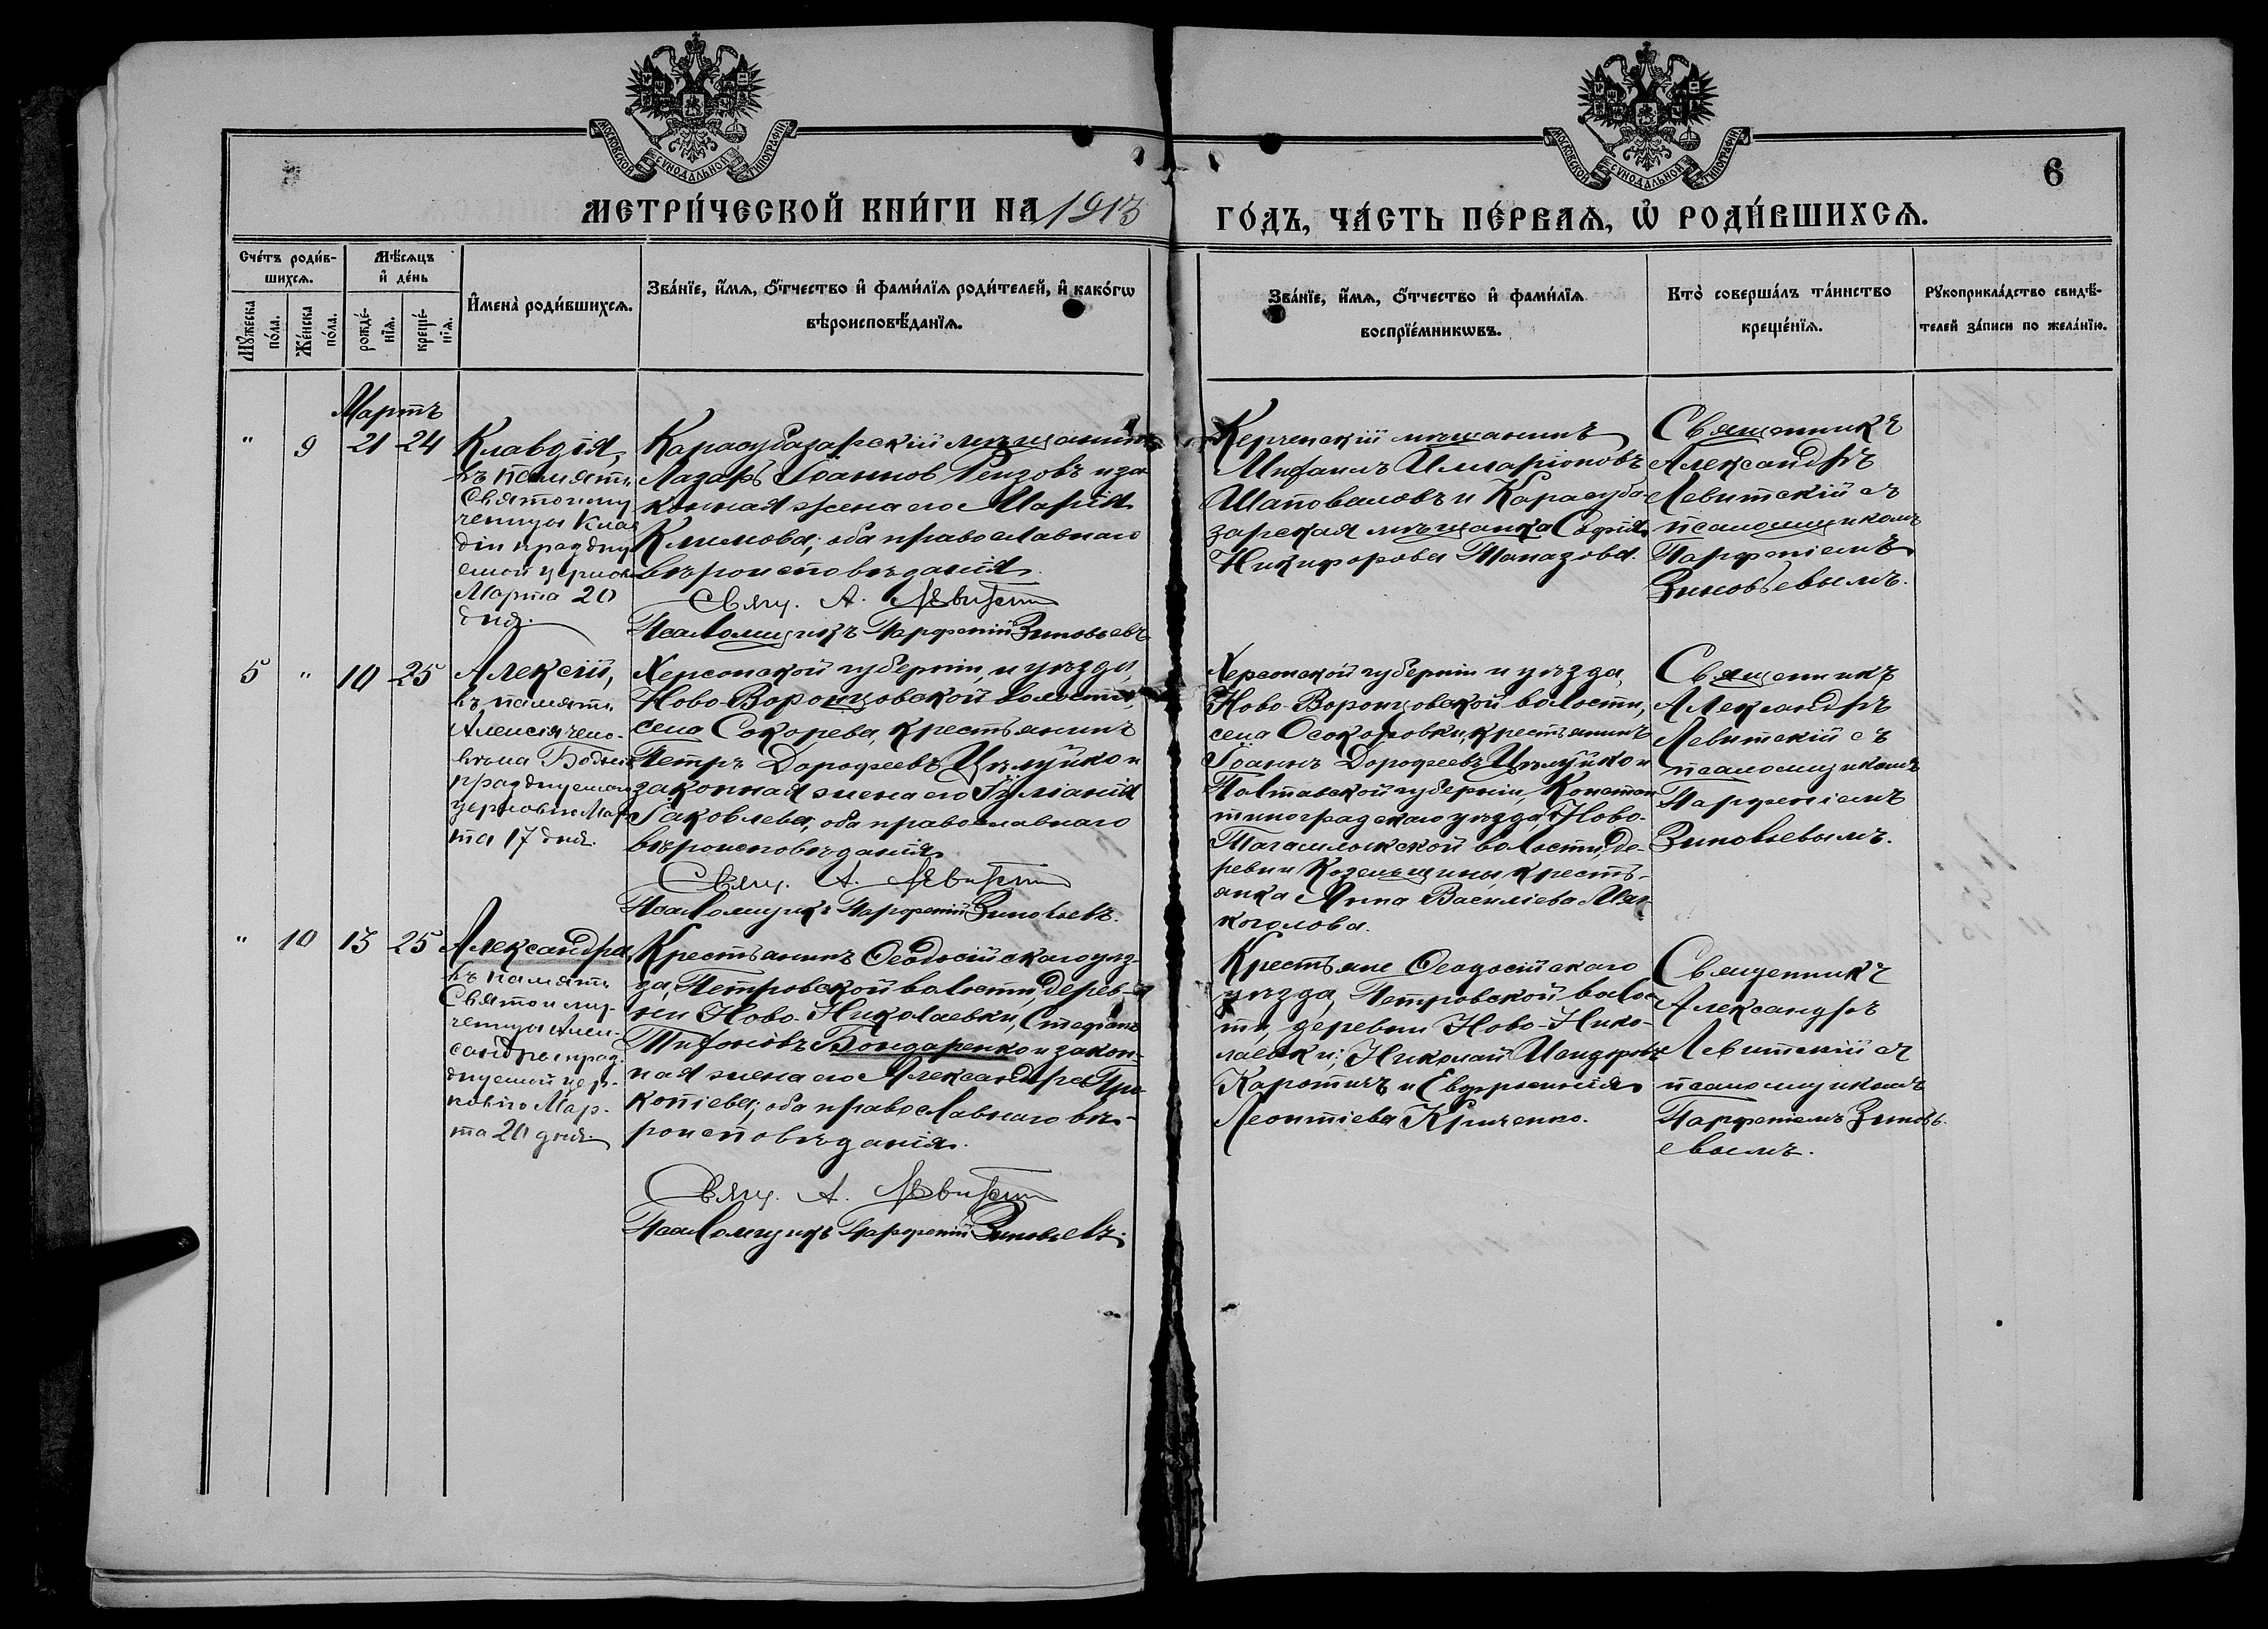 МОСКОВСКОЙ СѴНОДАЛЬНОЙ ТИПОГРАФІИ.
МОСКОВСКОЙ СѴНОДАЛЬНОЙ ТИПОГРАФІИ.
6
МЕТРИ́ЧЕСКОЙ КНИ́ГИ НА 1913
ГО́ДЪ, ЧА́СТЬ ПЕ́РВАЯ, Ѡ РОДИ́ВШИХСѦ.
Сче́тъ роди́в-
шихсѧ.
Мѣ́сѧцъ
и҆ де́нь
Мꙋ́жеска по́ла.
Же́нска по́ла.
рожде́-
нїѧ.
креще́-
нїѧ.
И҆мена̀ роди́вшихсѧ.
Зва́нїе, и҆́мѧ, ѻ҆́тчество и҆ фами́лїѧ роди́телей, и҆ како́гѡ
вѣроисповѣ́данїѧ.
Зва́нїе, и҆́мѧ, ѻ҆́тчество и҆ фами́лїѧ
воспрїе́мникѡвъ.
Кто̀ соверша́лъ та́инство
креще́нїѧ.
Рꙋкоприкла́дство свидѣ́-
телей за́писи по жела́нїю.
Мартъ
" 9 21 24
Клавдія,
въ память
Святой му
ченицы Клав
діи праздну
емой церков
Марта 20
дня.
Карасубазарскій мѣщанинъ
Лазарь Іоаннов Ризовъ и за
конная жена его Марія
Климова; оба православнаго
вѣроисповѣданія.
Свящ. А. Левитскій
Псаломщикъ Парфеній Зиновьевъ
Керченскій мѣщанинъ
Михаилъ Илларіоновъ
Шаповаловъ и Карасуба-
зарская мѣщанка Софія
Никифорова
Священникъ
Александръ
Левитскій съ
псаломщикомъ
Парфеніемъ
Зиновьевымъ.
5 " 10 25
Алексій,
въ память
Алексія чело-
вѣка Божія
празднуемаго
церковію Мар
та 17 дня.
Херсонской губерніи, и уѣзда,
Ново-Воронцовской волости,
села Сокорева, крестьянинъ
Петръ Дорофеевъ Цѣлуйко и
законная жена его Іуліанія
Іаковлева, оба православнаго
вѣроисповѣданія.
Свящ. А. Левитскій
Псаломщикъ Парфеній Зиновьевъ.
Херсонской губерніи и уѣзда,
Ново-Воронцовской волости,
села Осокоровки, крестьянинъ
Іоаннъ Дорофеевъ Цѣлуйко и
Полтавской губерніи, Констан
тиноградскаго уѣзда, Ново-
Тагамлыкской волости, де-
ревни Козельщины крестья-
нка Анна Василіева Мяг
коголова.
Священникъ
Александръ
Левитскій съ
псаломщикомъ
Парфеніемъ
Зиновьевымъ.
" 10 13 25
Александра,
въ память
Святой му-
ченицы Алек-
сандры праз-
днуемой цер-
ковію Мар-
та 20 дня.
Крестьянинъ Ѳеодосійскаго уѣз-
да, Петровской волости, дерев-
ни Ново-Николаевки, Стефанъ
Тихоновъ Бондаренко и закон-
ная жена его Александра Про
копіева; оба православнаго вѣ-
роисповѣданія.
Свящ. А. Левитскій
Псаломщикъ Парфеній Зиновьевъ.
Крестьяне Ѳеодосійскаго
уѣзда, Петровской волос
ти, деревни Ново-Нико-
лаевки; Николай Исидоровъ
Каротичъ и Евфросинія
Леонтіева Крыченко.
Священникъ
Александръ
Левитскій съ
псаломщикомъ
Парфеніемъ Зиновь-
евымъ.